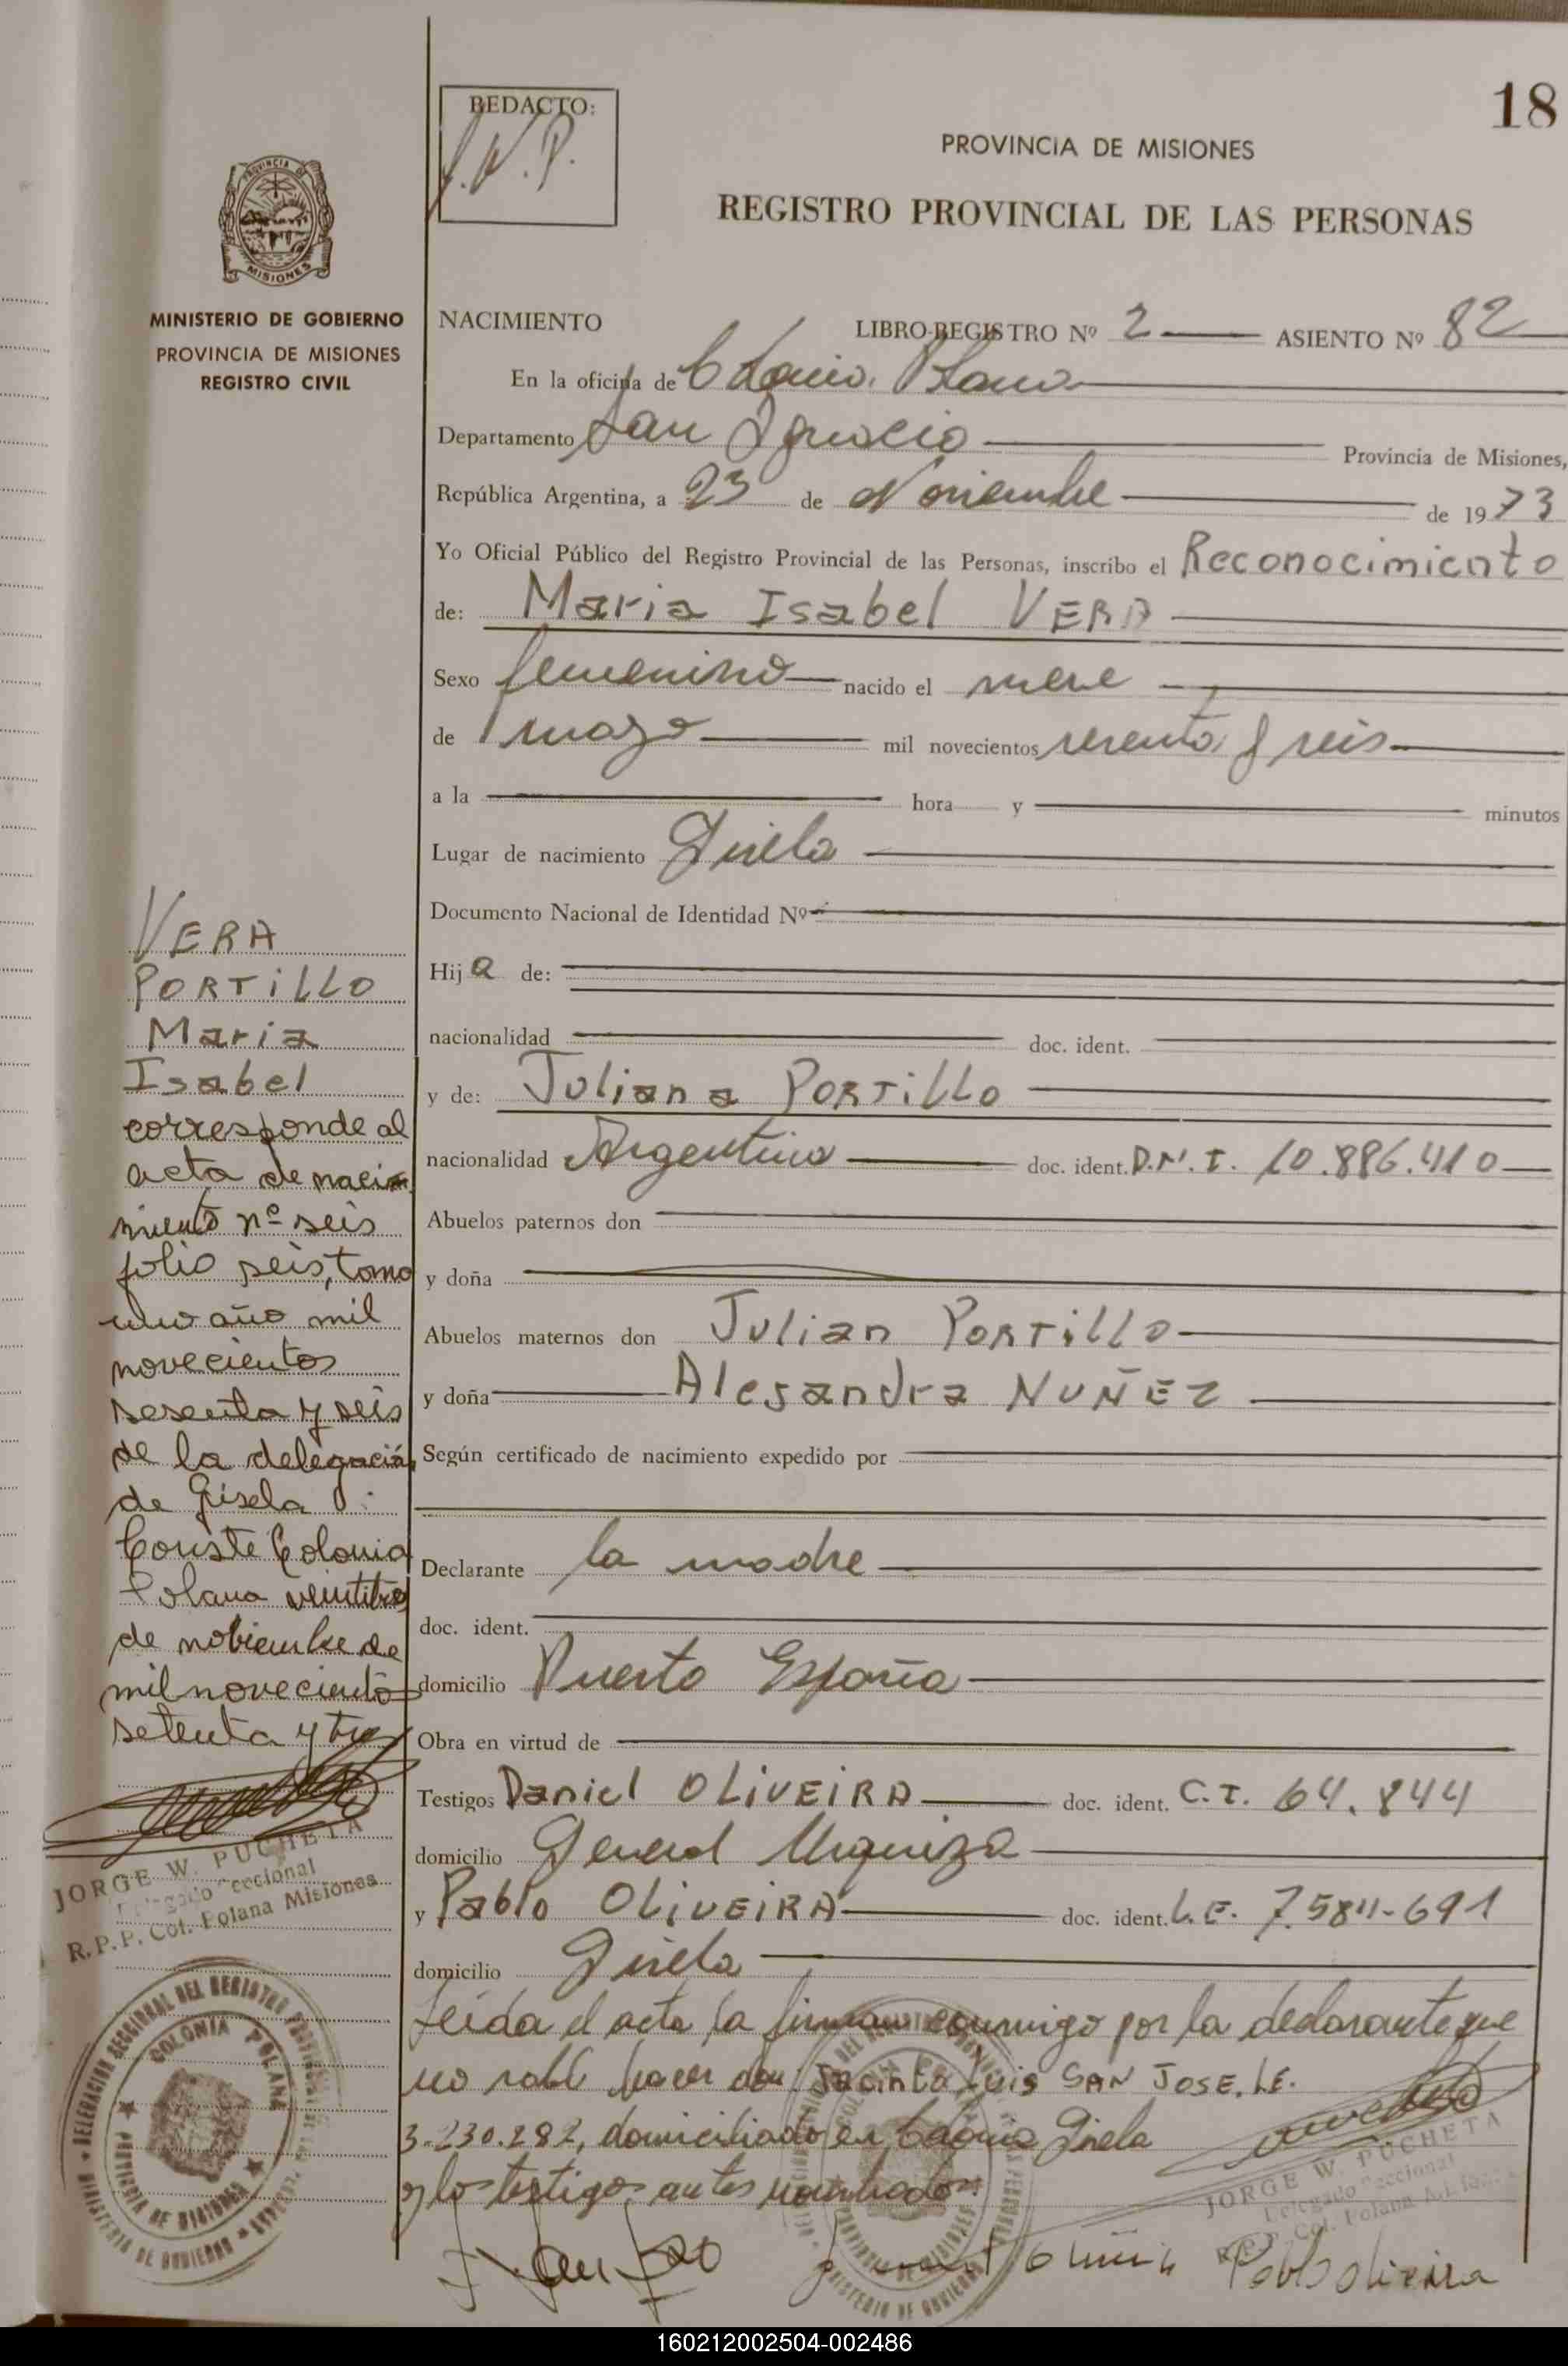 18
REDACTO:
J.W.P.
PROVINCIA DE MISIONES
REGISTRO PROVINCIAL DE LAS PERSONAS
PROVINCIA DE
MISIONES
MINISTERIO DE GOBIERNO
PROVINCIA DE MISIONES
REGISTRO CIVIL
NACIMIENTO LIBRO-REGISTRO Nº 2 ASIENTO Nº 82
En la oficina de Colonia Polana
Departamento San Ignacio Provincia de Misiones,
República Argentina, a 23 de Noviembre de 1973
Yo Oficial Público del Registro Provincial de las Personas, inscribo el Reconocimiento
de: Maria Isabel VERA
Sexo femenino nacido el nueve
de mayo mil novecientos sesenta y seis
a la hora y minutos
Lugar de nacimiento Gisela
Documento Nacional de Identidad Nº
Hija de:
nacionalidad doc. ident.
y de: Juliana PORTILLO
nacionalidad Argentina doc. ident. D.N.I. 10.886.410
Abuelos paternos don
y doña
Abuelos maternos don Julian PORTILLO
y doña Alejandra NUÑEZ
Según certificado de nacimiento expedido por
Declarante la madre
doc. ident.
domicilio Puerto España
Obra en virtud de
Testigos Daniel OLIVEIRA doc. ident. C.I. 64.844
domicilio General Urquiza
y Pablo OLIVEIRA doc. ident. L.E. 7.584-691
domicilio Gisela
Leida el acta la firman conmigo por la declarante que
no sabe hacer don Jacinto Luis SAN JOSE, L.E.
3.230.282, domiciliado en Colonia Gisela
y los testigos antes nombrados
JORGE W. PUCHETA
Delegado Seccional
R.P.P. Col. Polana
Pablo oliveira
VERA
PORTILLO
Maria
Isabel
corresponde al
acta de naci
miento nº seis
folio seis, tomo
uno año mil
novecientos
sesenta y seis
de la delegación
de Gisela
Conste Colonia
Polana veintitres
de nobiembre de
mil novecientos
setenta y tres
JORGE W. PUCHETA
Delegado Seccional
R.P.P. Col. Polana Misiones
DELEGACION SECCIONAL DEL REGISTRO PROVINCIAL DE LAS PERSONAS
COLONIA POLANA
PROVINCIA DE MISIONES
MINISTERIO DE GOBIERNO
160212002504-002486